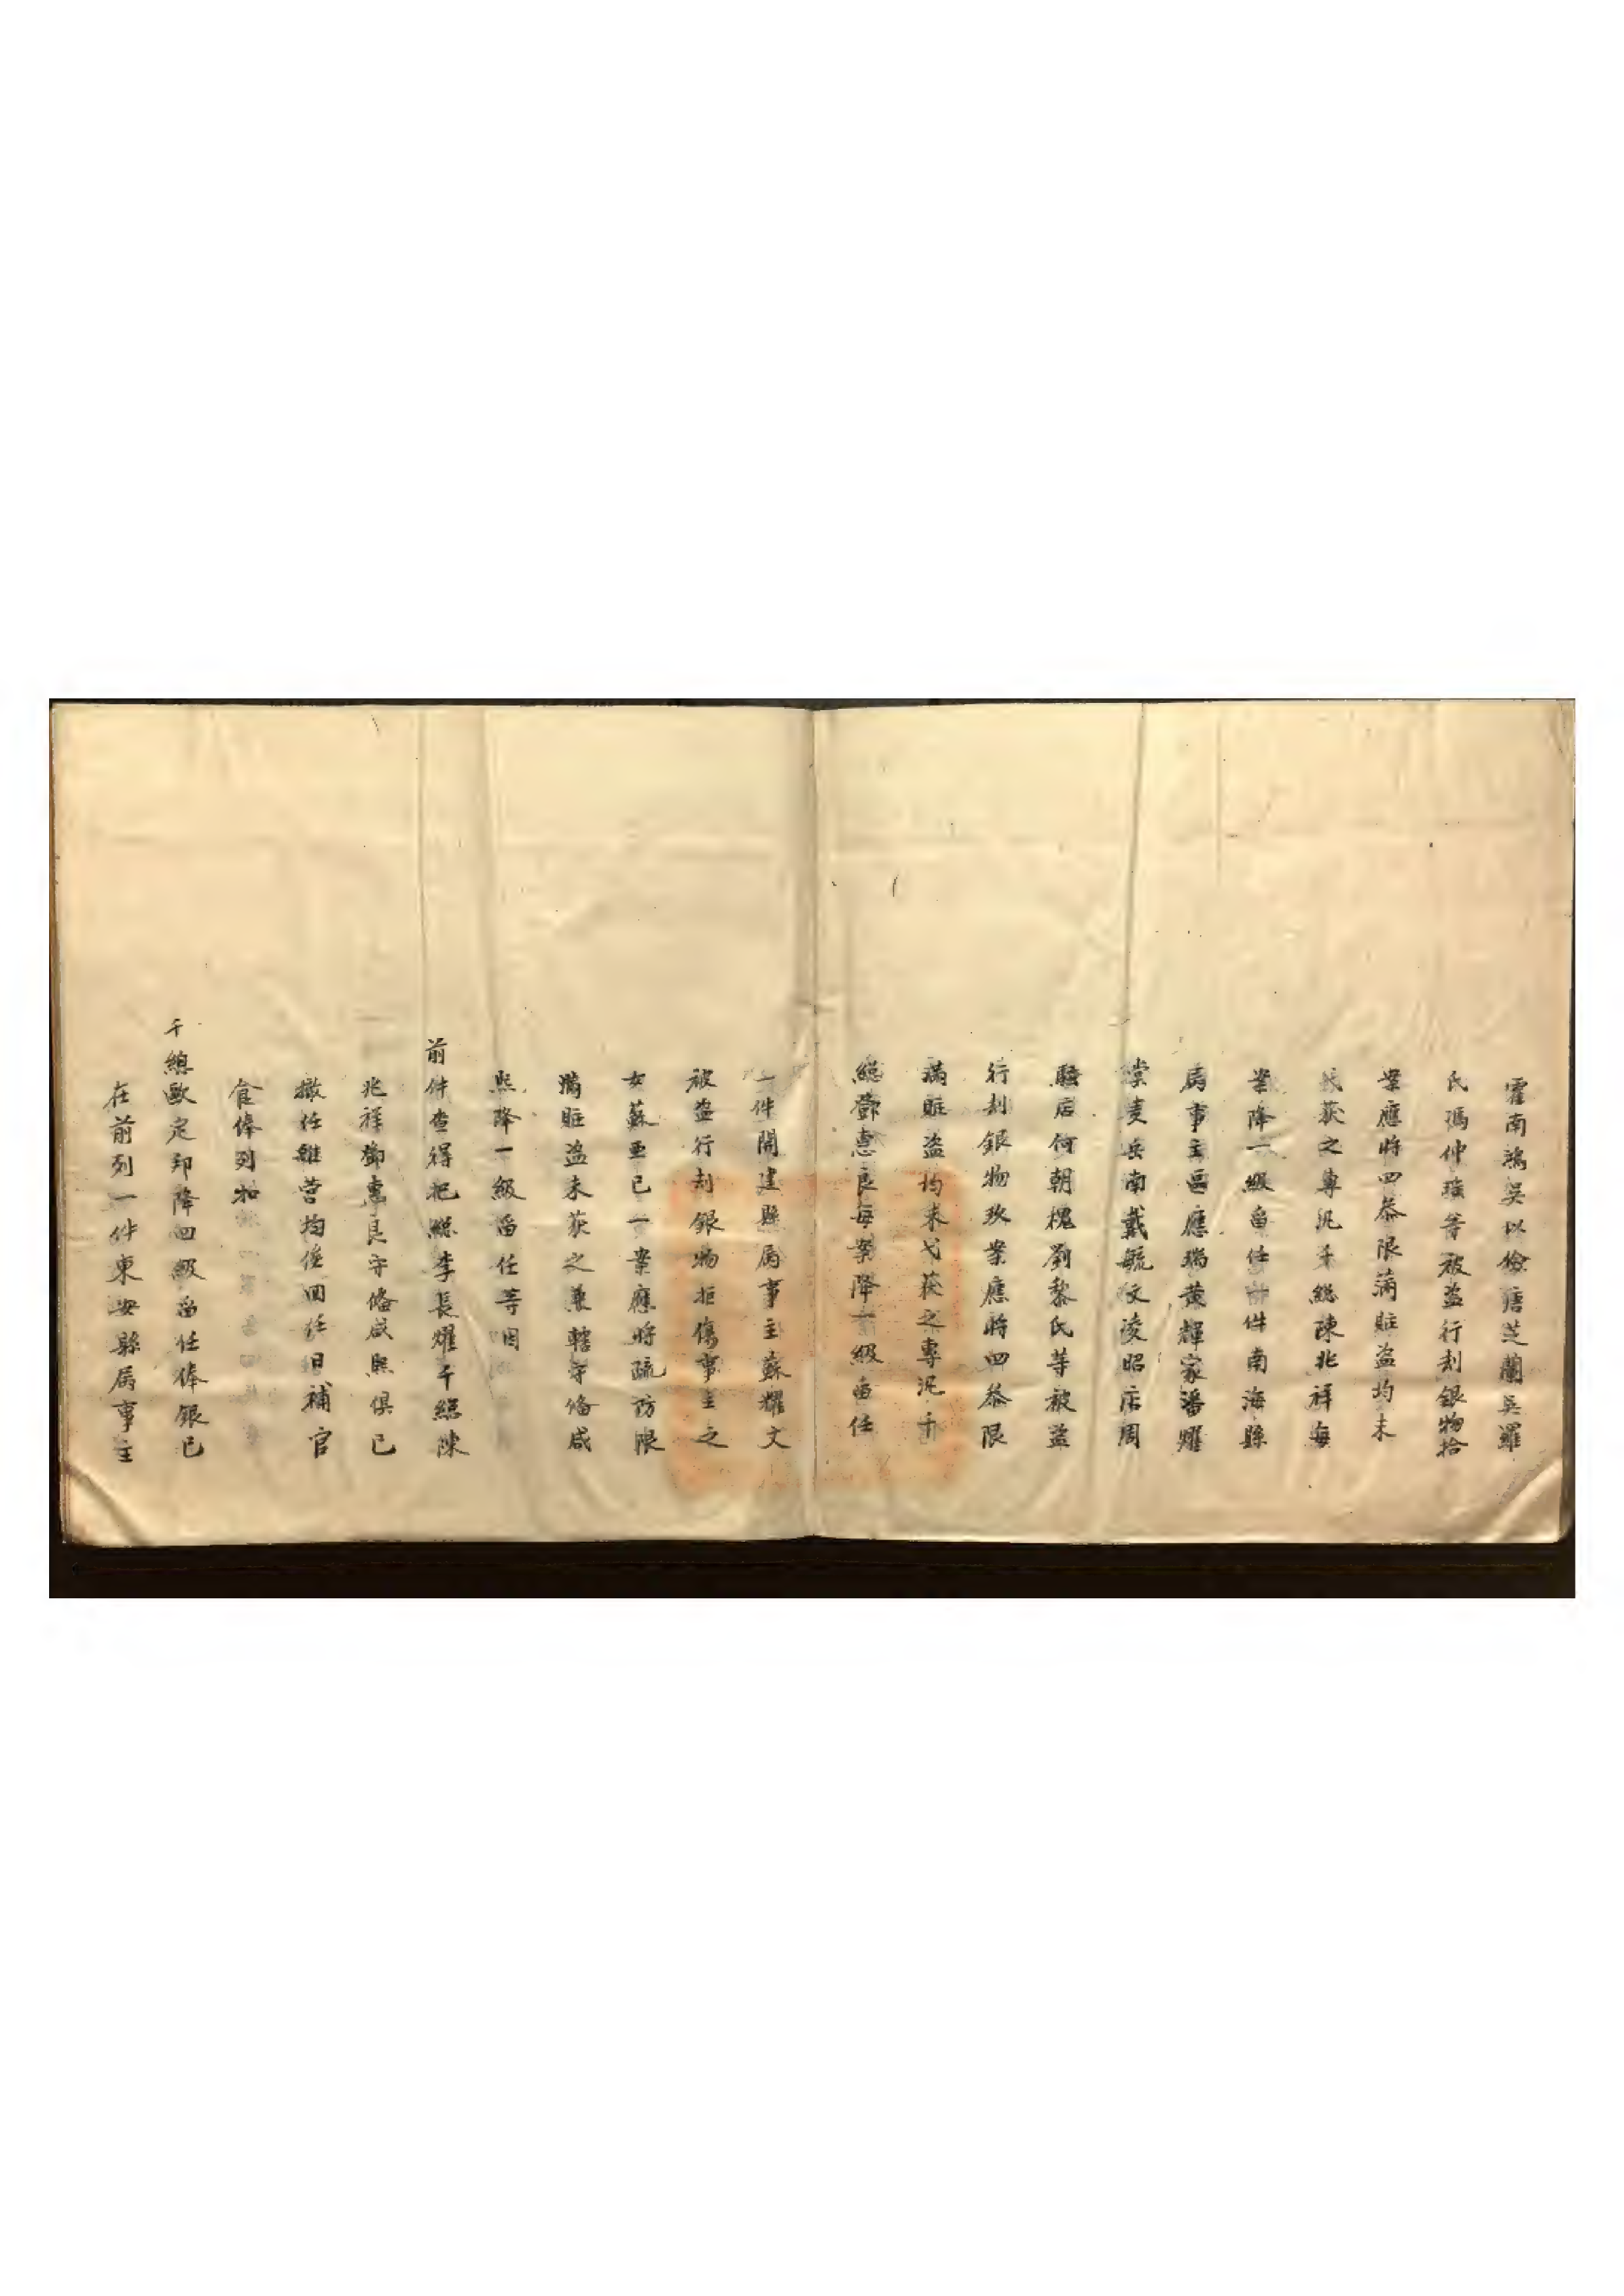 霍南鴻吳以儉唐芝蘭吳羅
氏馮仲強等被盜行刦銀物拾
案應將四叅限滿賍盜均未
弋获之專汛千総陳兆祥每
案降一級畱任一件南海縣
属事主區應瑞黄輝家潘耀
棠麦岳南戴毓文淩昭店周
騷店何朝槐劉黎氏等被盜
行刦銀物玖案應將四叅限
滿賍盜均未弋获之專汛千
総鄧惠良每案降一級畱任
一件開建縣属事主蘇耀文
被盜行刦銀物拒傷事主之
女蘇亜已一案應將疏防限
滿賍盜未获之兼轄守俻咸
熙降一級畱任等因
前件查得把縂李長耀千縂陳
兆祥鄧惠良守俻咸熙俱已
撤任離营均俟囬任日補官
食俸列扣
千縂歐定邦降四級畱任俸銀已
在前列一件東安縣属事主